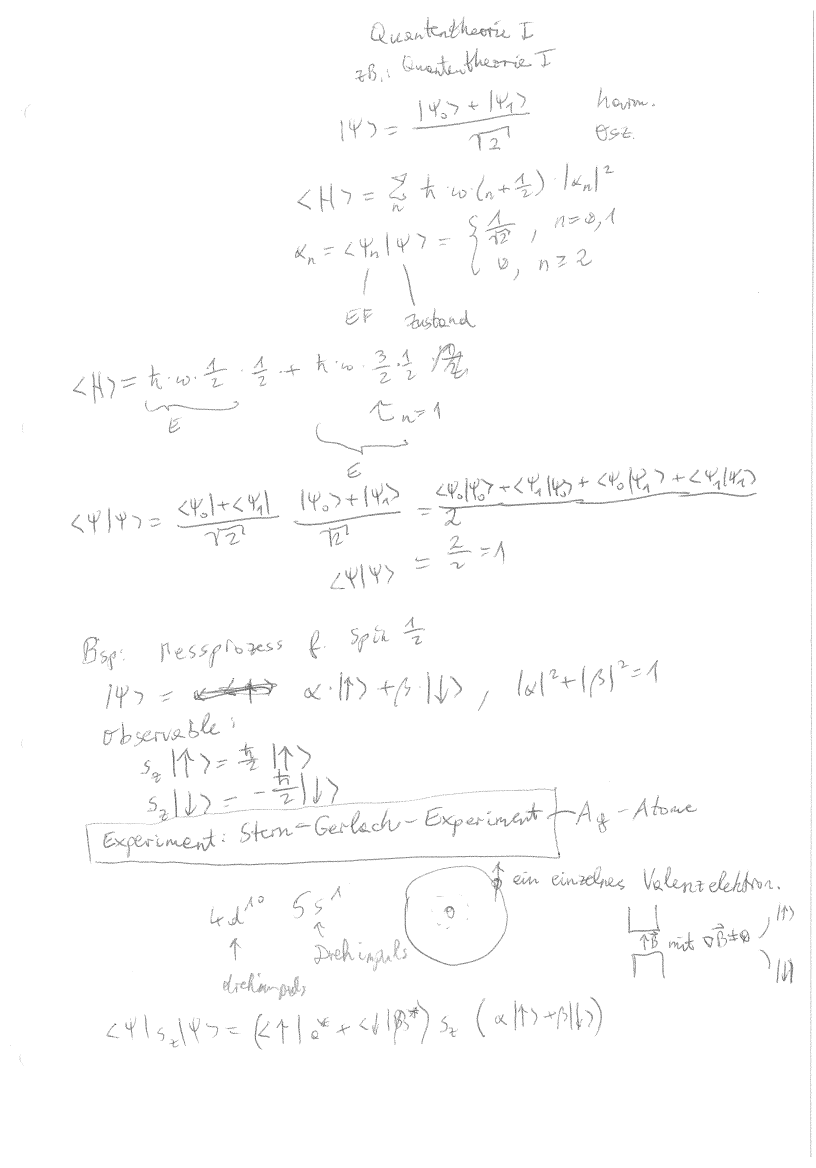 Quantentheorie I
zB.: Quantentheorie I
|Ψ> = (|Ψ₀> + |Ψ₁>)/√2 harm. Osz.
<H> = Σₙ ħ·ω·(n+1/2)·|αₙ|²
αₙ = <Ψₙ|Ψ> = { 1/√2, n=0,1
0, n≥2
EF Zustand
<H> = ħ·ω·1/2·1/2 + ħ·ω·3/2·1/2
E n=1
E
<Ψ|Ψ> = (<Ψ₀|+<Ψ₁|)/√2 (|Ψ₀>+|Ψ₁>)/√2 = (<Ψ₀|Ψ₀>+<Ψ₁|Ψ₀>+<Ψ₀|Ψ₁>+<Ψ₁|Ψ₁>)/2
<Ψ|Ψ> = 2/2 = 1
Bsp: Messprozess f. Spin 1/2
|Ψ> = α·|↑> + β·|↓>, |α|²+|β|²=1
Observable:
s_z |↑> = ħ/2 |↑>
s_z |↓> = -ħ/2 |↓>
Experiment: Stern-Gerlach-Experiment - Ag-Atome
ein einzelnes Valenzelektron.
4d¹⁰ 5s¹
↑B⃗ mit ∇B⃗≠0 |↑>
|↓>
Drehimpuls
drehimpuls
<Ψ|s_z|Ψ> = (<↑|α* + <↓|β*) s_z (α|↑>+β|↓>)